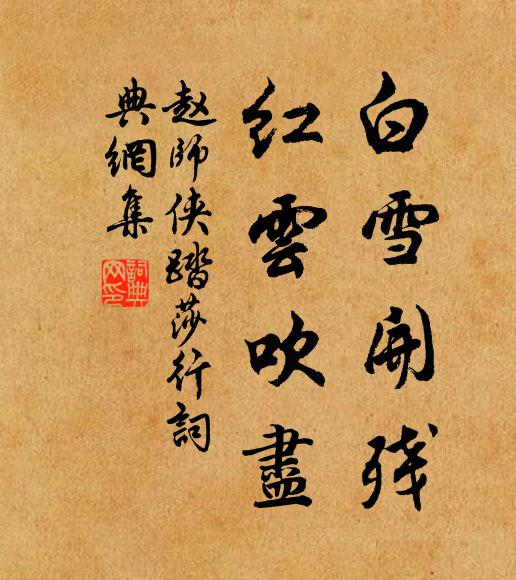 白雪開残
紅雲吹盡
赵師侠踏莎行詞
典網集
詞典网印